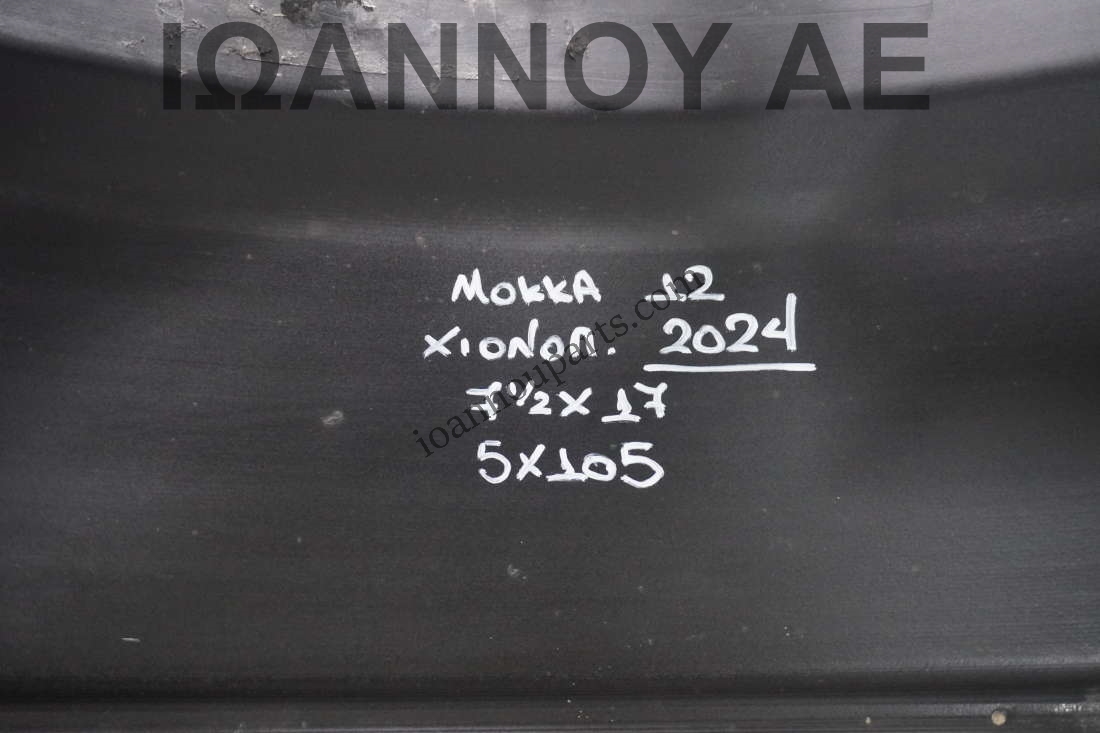 ΙΩΑΝΝΟΥ ΑΕ
ΜΟΚΚΑ 12
ΧΙΟΝΟΠ. 2024
7 1/2 X 17
5X105
ioannouparts.com